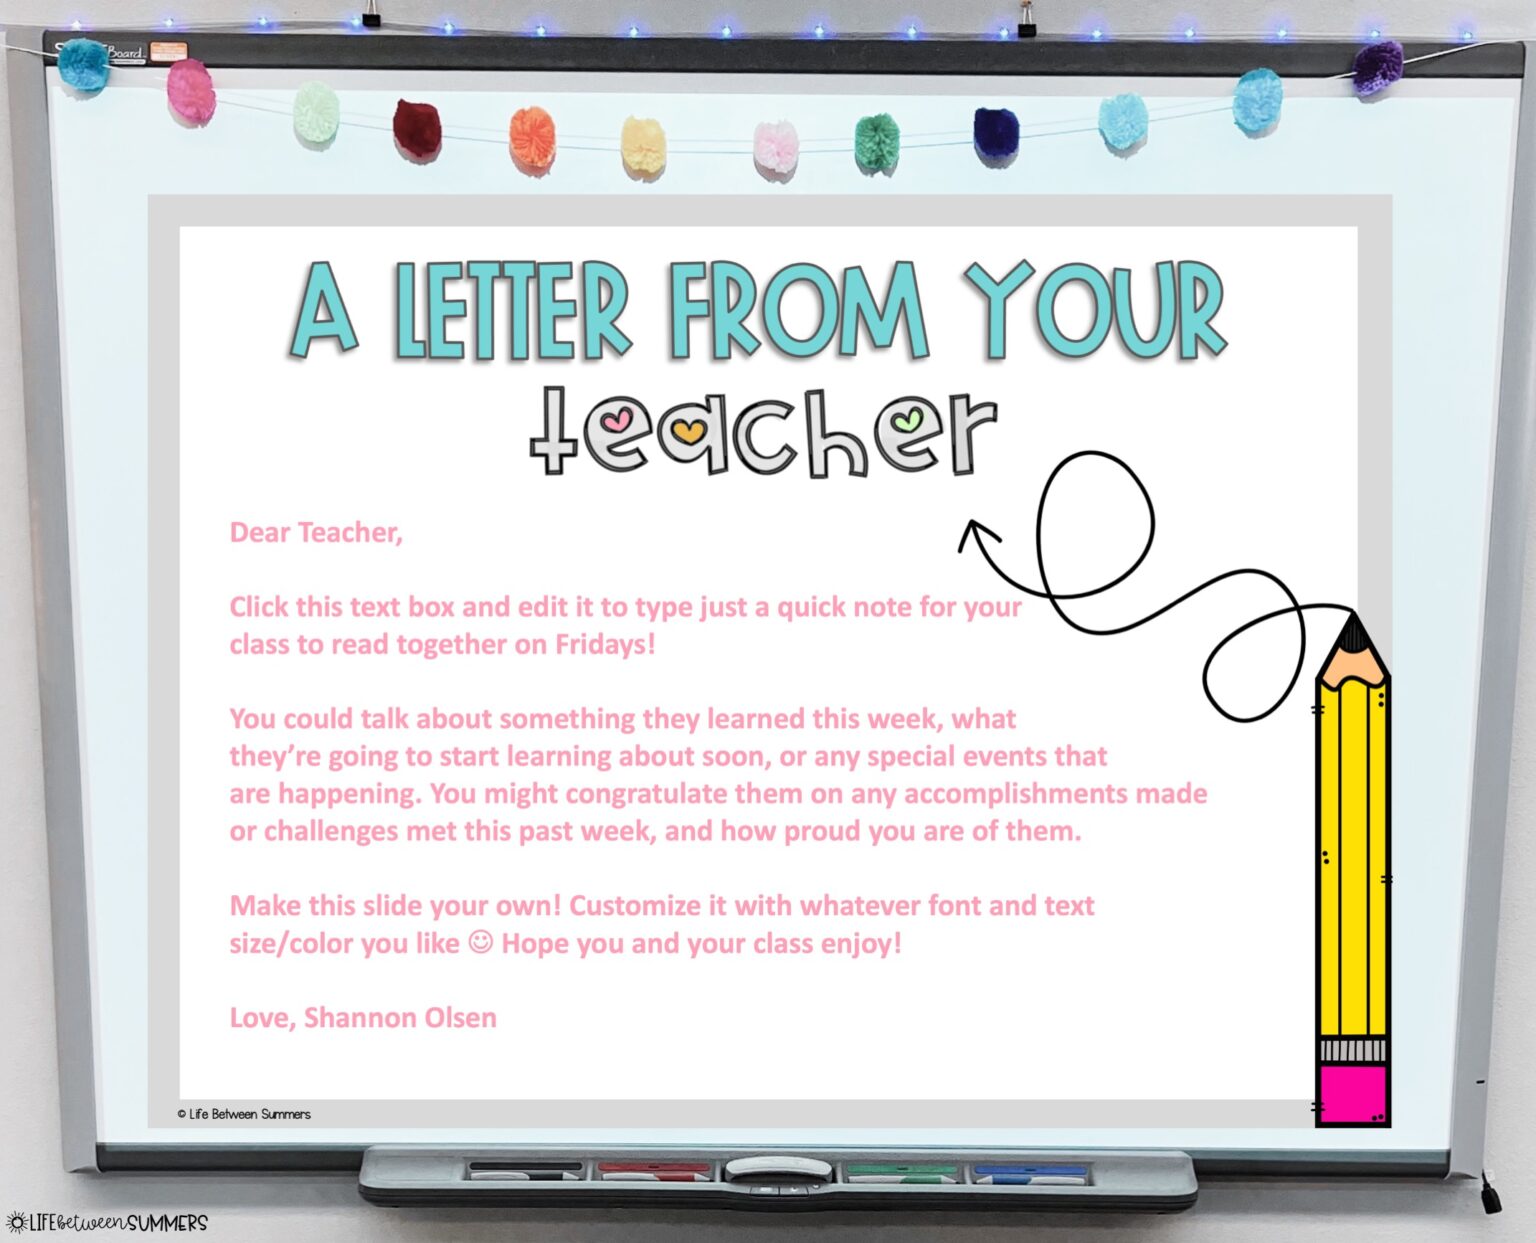 Board
A LETTER FROM YOUR
teacher
Dear Teacher,
Click this text box and edit it to type just a quick note for your
class to read together on Fridays!
You could talk about something they learned this week, what
they’re going to start learning about soon, or any special events that
are happening. You might congratulate them on any accomplishments made
or challenges met this past week, and how proud you are of them.
Make this slide your own! Customize it with whatever font and text
size/color you like ☺ Hope you and your class enjoy!
Love, Shannon Olsen
© Life Between Summers
LIFE between SUMMERS